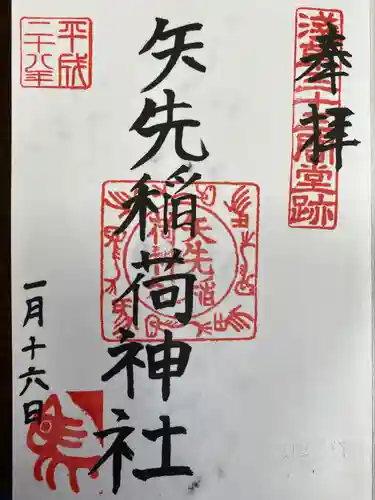 奉拝
浅草三十三間堂跡
矢先稲荷神社
矢先稲荷神社
平成
二十八年
一月十六日